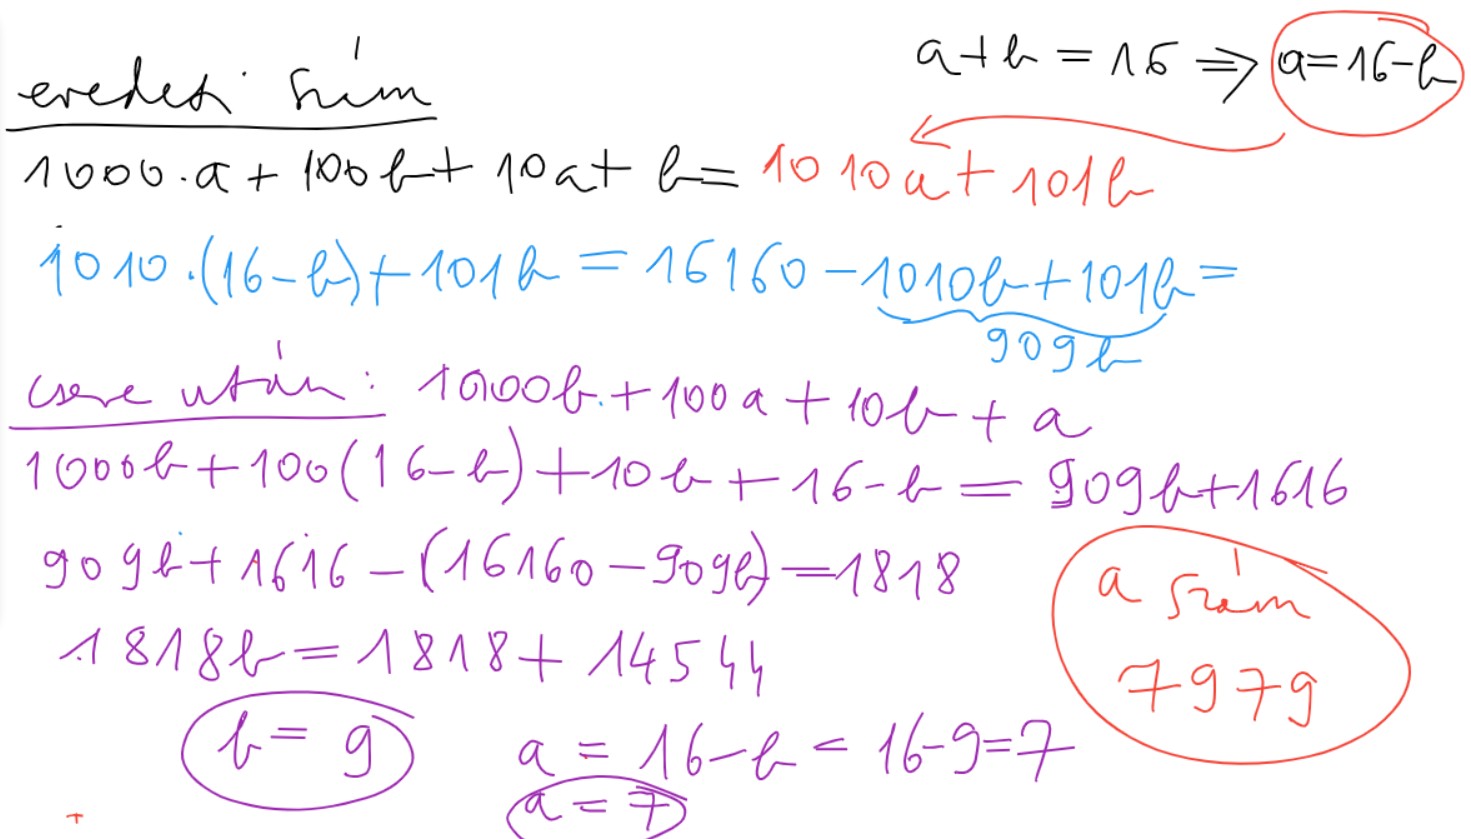 a+b = 16 ⇒ a=16-b
eredeti szám
1000·a + 100b + 10a + b = 1010a + 101b
1010·(16-b)+101b = 16160 - 1010b + 101b =
909b
csere után: 1000b + 100a + 10b + a
1000b + 100(16-b) + 10b + 16-b = 909b+1616
909b + 1616 - (16160 - 909b) = 1818
1818b = 1818 + 14544
a szám
7979
b = 9
a = 16-b = 16-9=7
a = 7